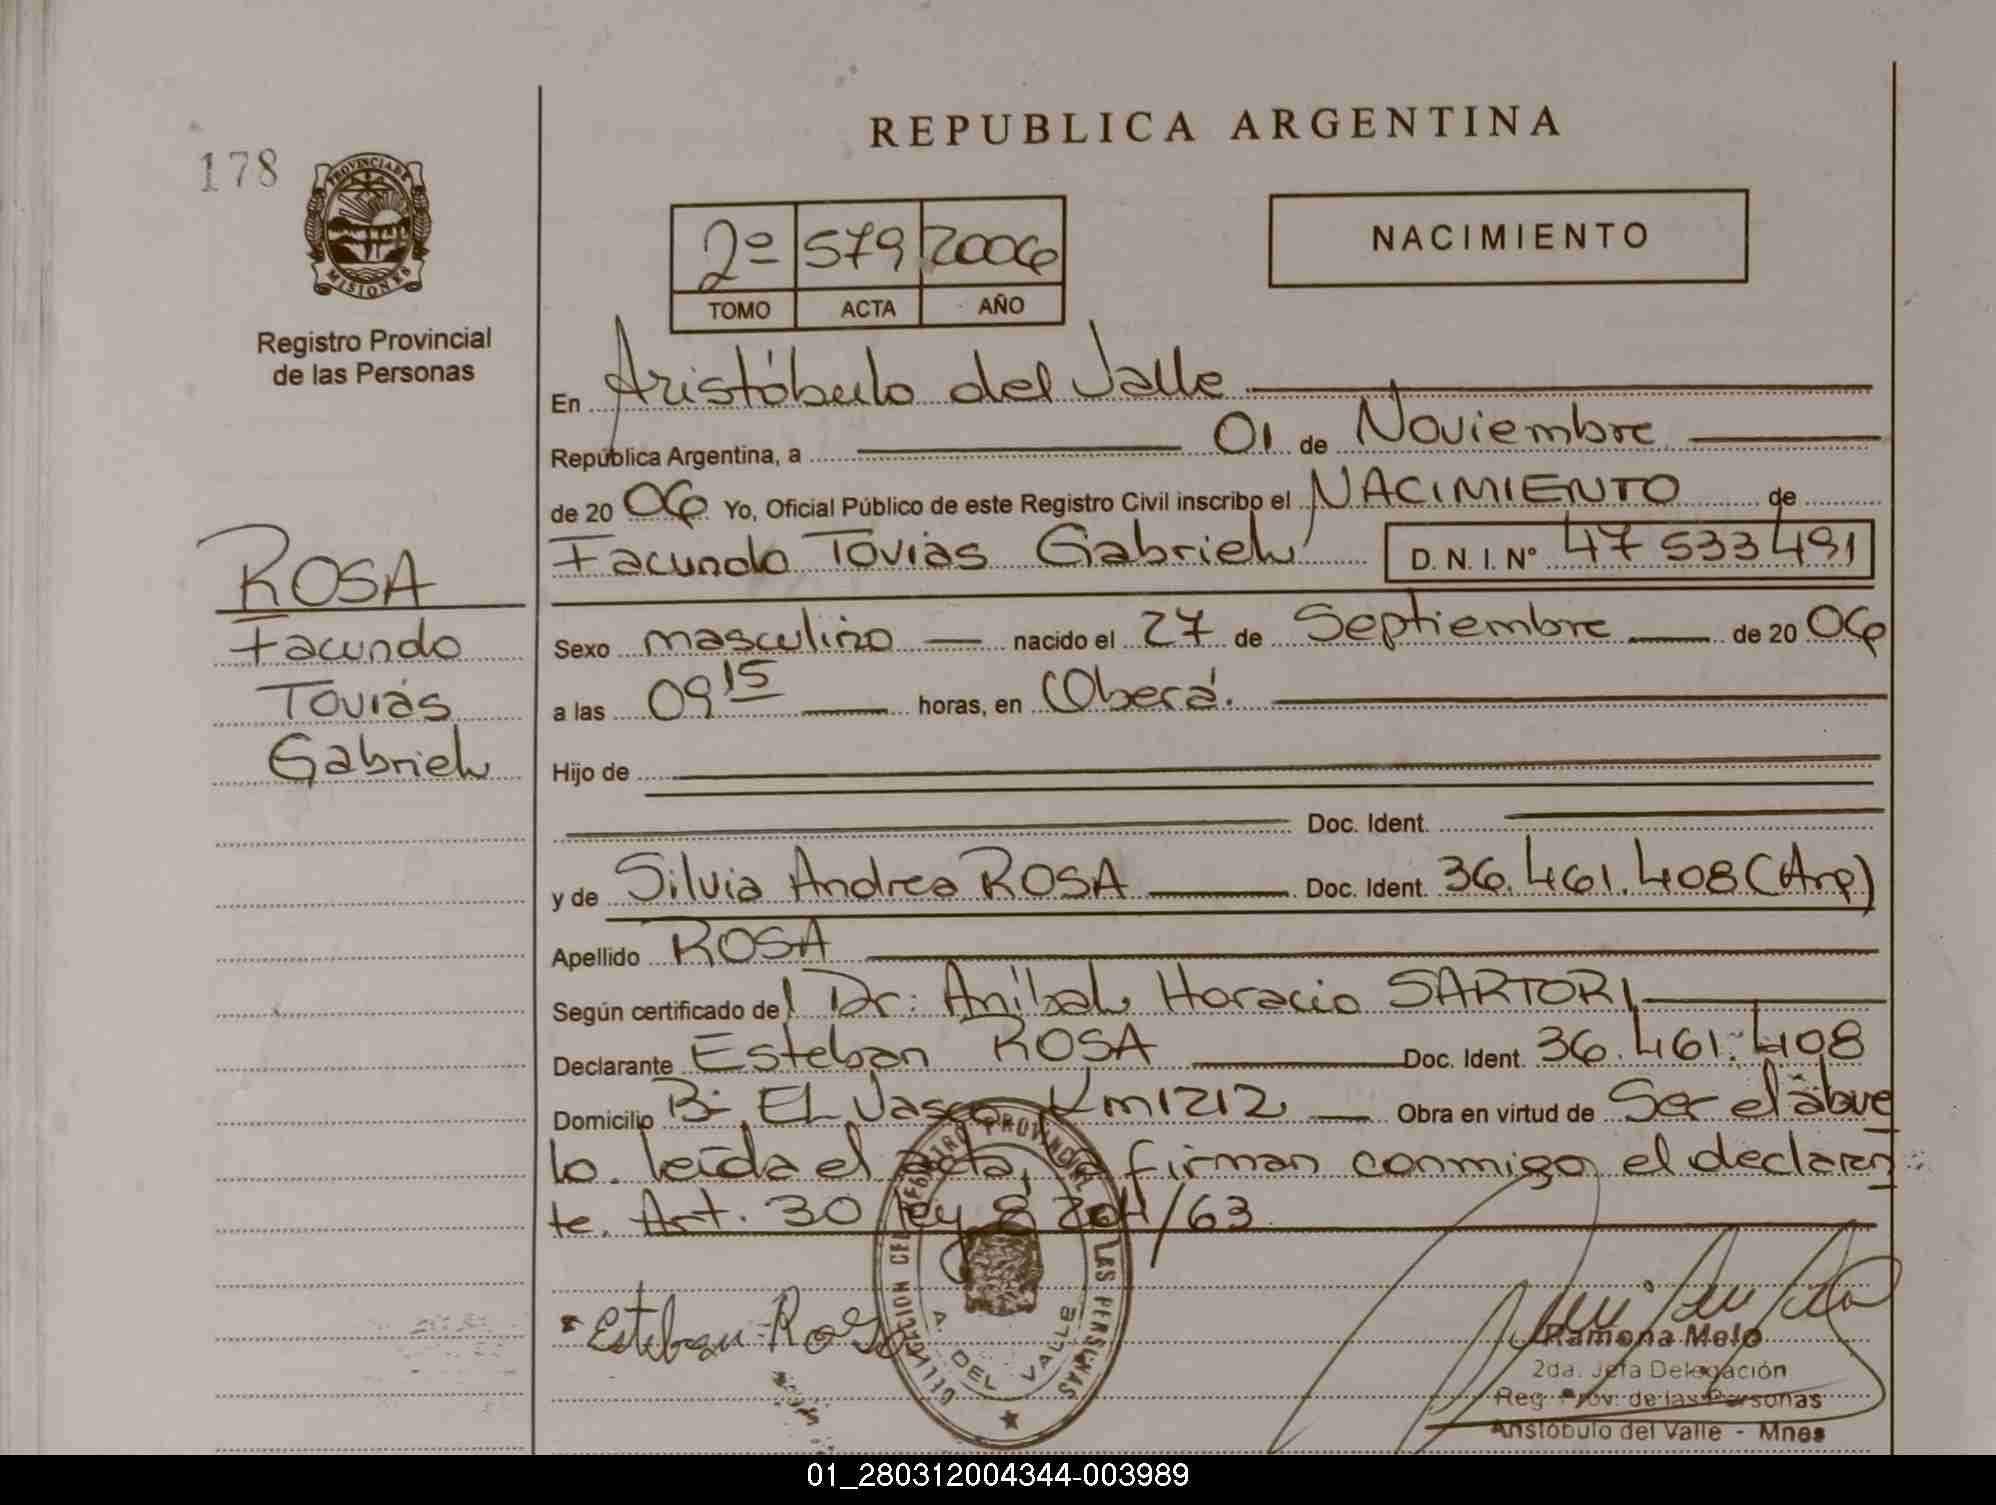 REPUBLICA ARGENTINA
178
PROVINCIA DE
MISIONES
Registro Provincial
de las Personas
2º 579 2006
TOMO ACTA AÑO
NACIMIENTO
En Aristóbulo del Valle
República Argentina, a 01 de Noviembre
de 20 06 Yo, Oficial Público de este Registro Civil inscribo el NACIMIENTO de
Facundo Tovias Gabriel D. N. I. Nº 47 533 491
ROSA
Facundo
Toviás
Gabriel
Sexo masculino nacido el 27 de Septiembre de 20 06
a las 09 15 horas, en Oberá.
Hijo de
Doc. Ident.
y de Silvia Andrea ROSA Doc. Ident. 36.461.408 (Arg)
Apellido ROSA
Según certificado del Dr: Aníbal Horacio SARTORI
Declarante Esteban ROSA Doc. Ident. 36.461.408
Domicilio Bº EL Vasco Km 1212 Obra en virtud de Ser el abue
lo. leída el acta, firman conmigo el declaran
te. Art. 30 ley 8204/63
Esteban Rosa
PROVINCIAL
LAS PERSONAS
A. DEL VALLE
Ramona Melo
2da. Jefa Delegación
Reg. Prov. de las Personas
Aristóbulo del Valle - Mnes
01_280312004344-003989